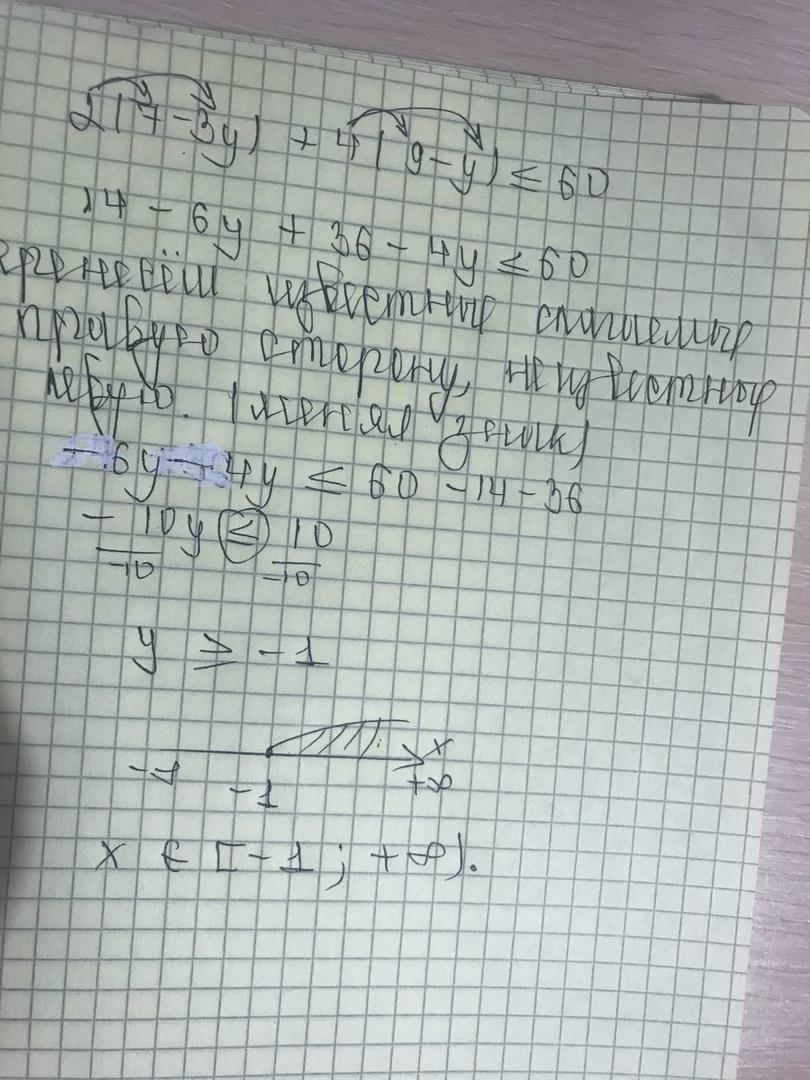 2(7-3y) + 4(9-y) ≤ 60
14 - 6y + 36 - 4y ≤ 60
еренесём известные слагаемые
правую сторону, неизвестные
левую. (меняя знак)
-6y-4y ≤ 60 -14-36
- 10y ≤ 10
-10 -10
y ≥ -1
x
-∞ -1 +∞
x ∈ [-1 ; +∞).